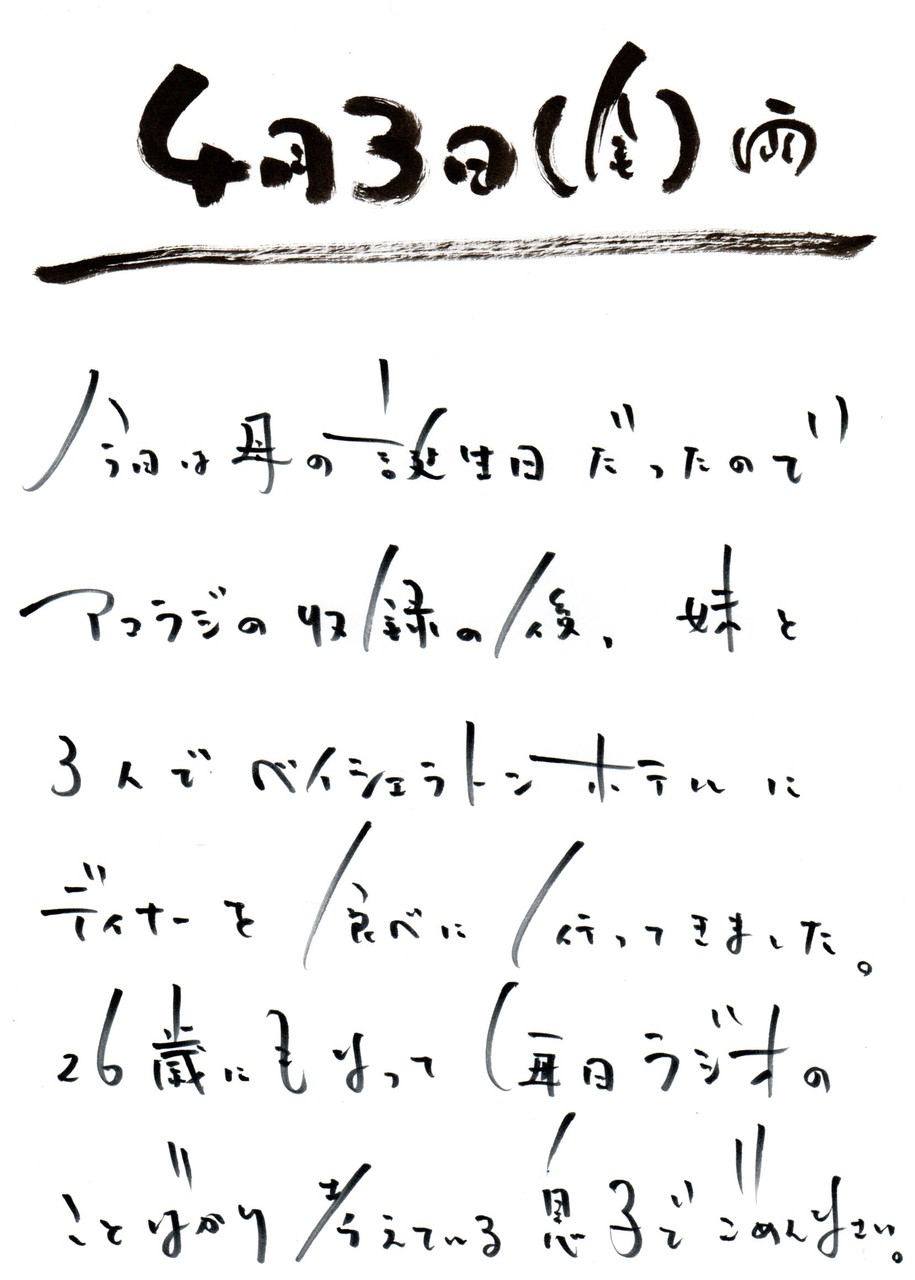 4月3日(金) 雨
今日は母の誕生日だったので
アコラジの収録の後、妹と
3人でベイシェラトンホテルに
ディナーを食べに行ってきました。
26歳にもなって毎日ラジオの
ことばかり考えている息子でごめんなさい。